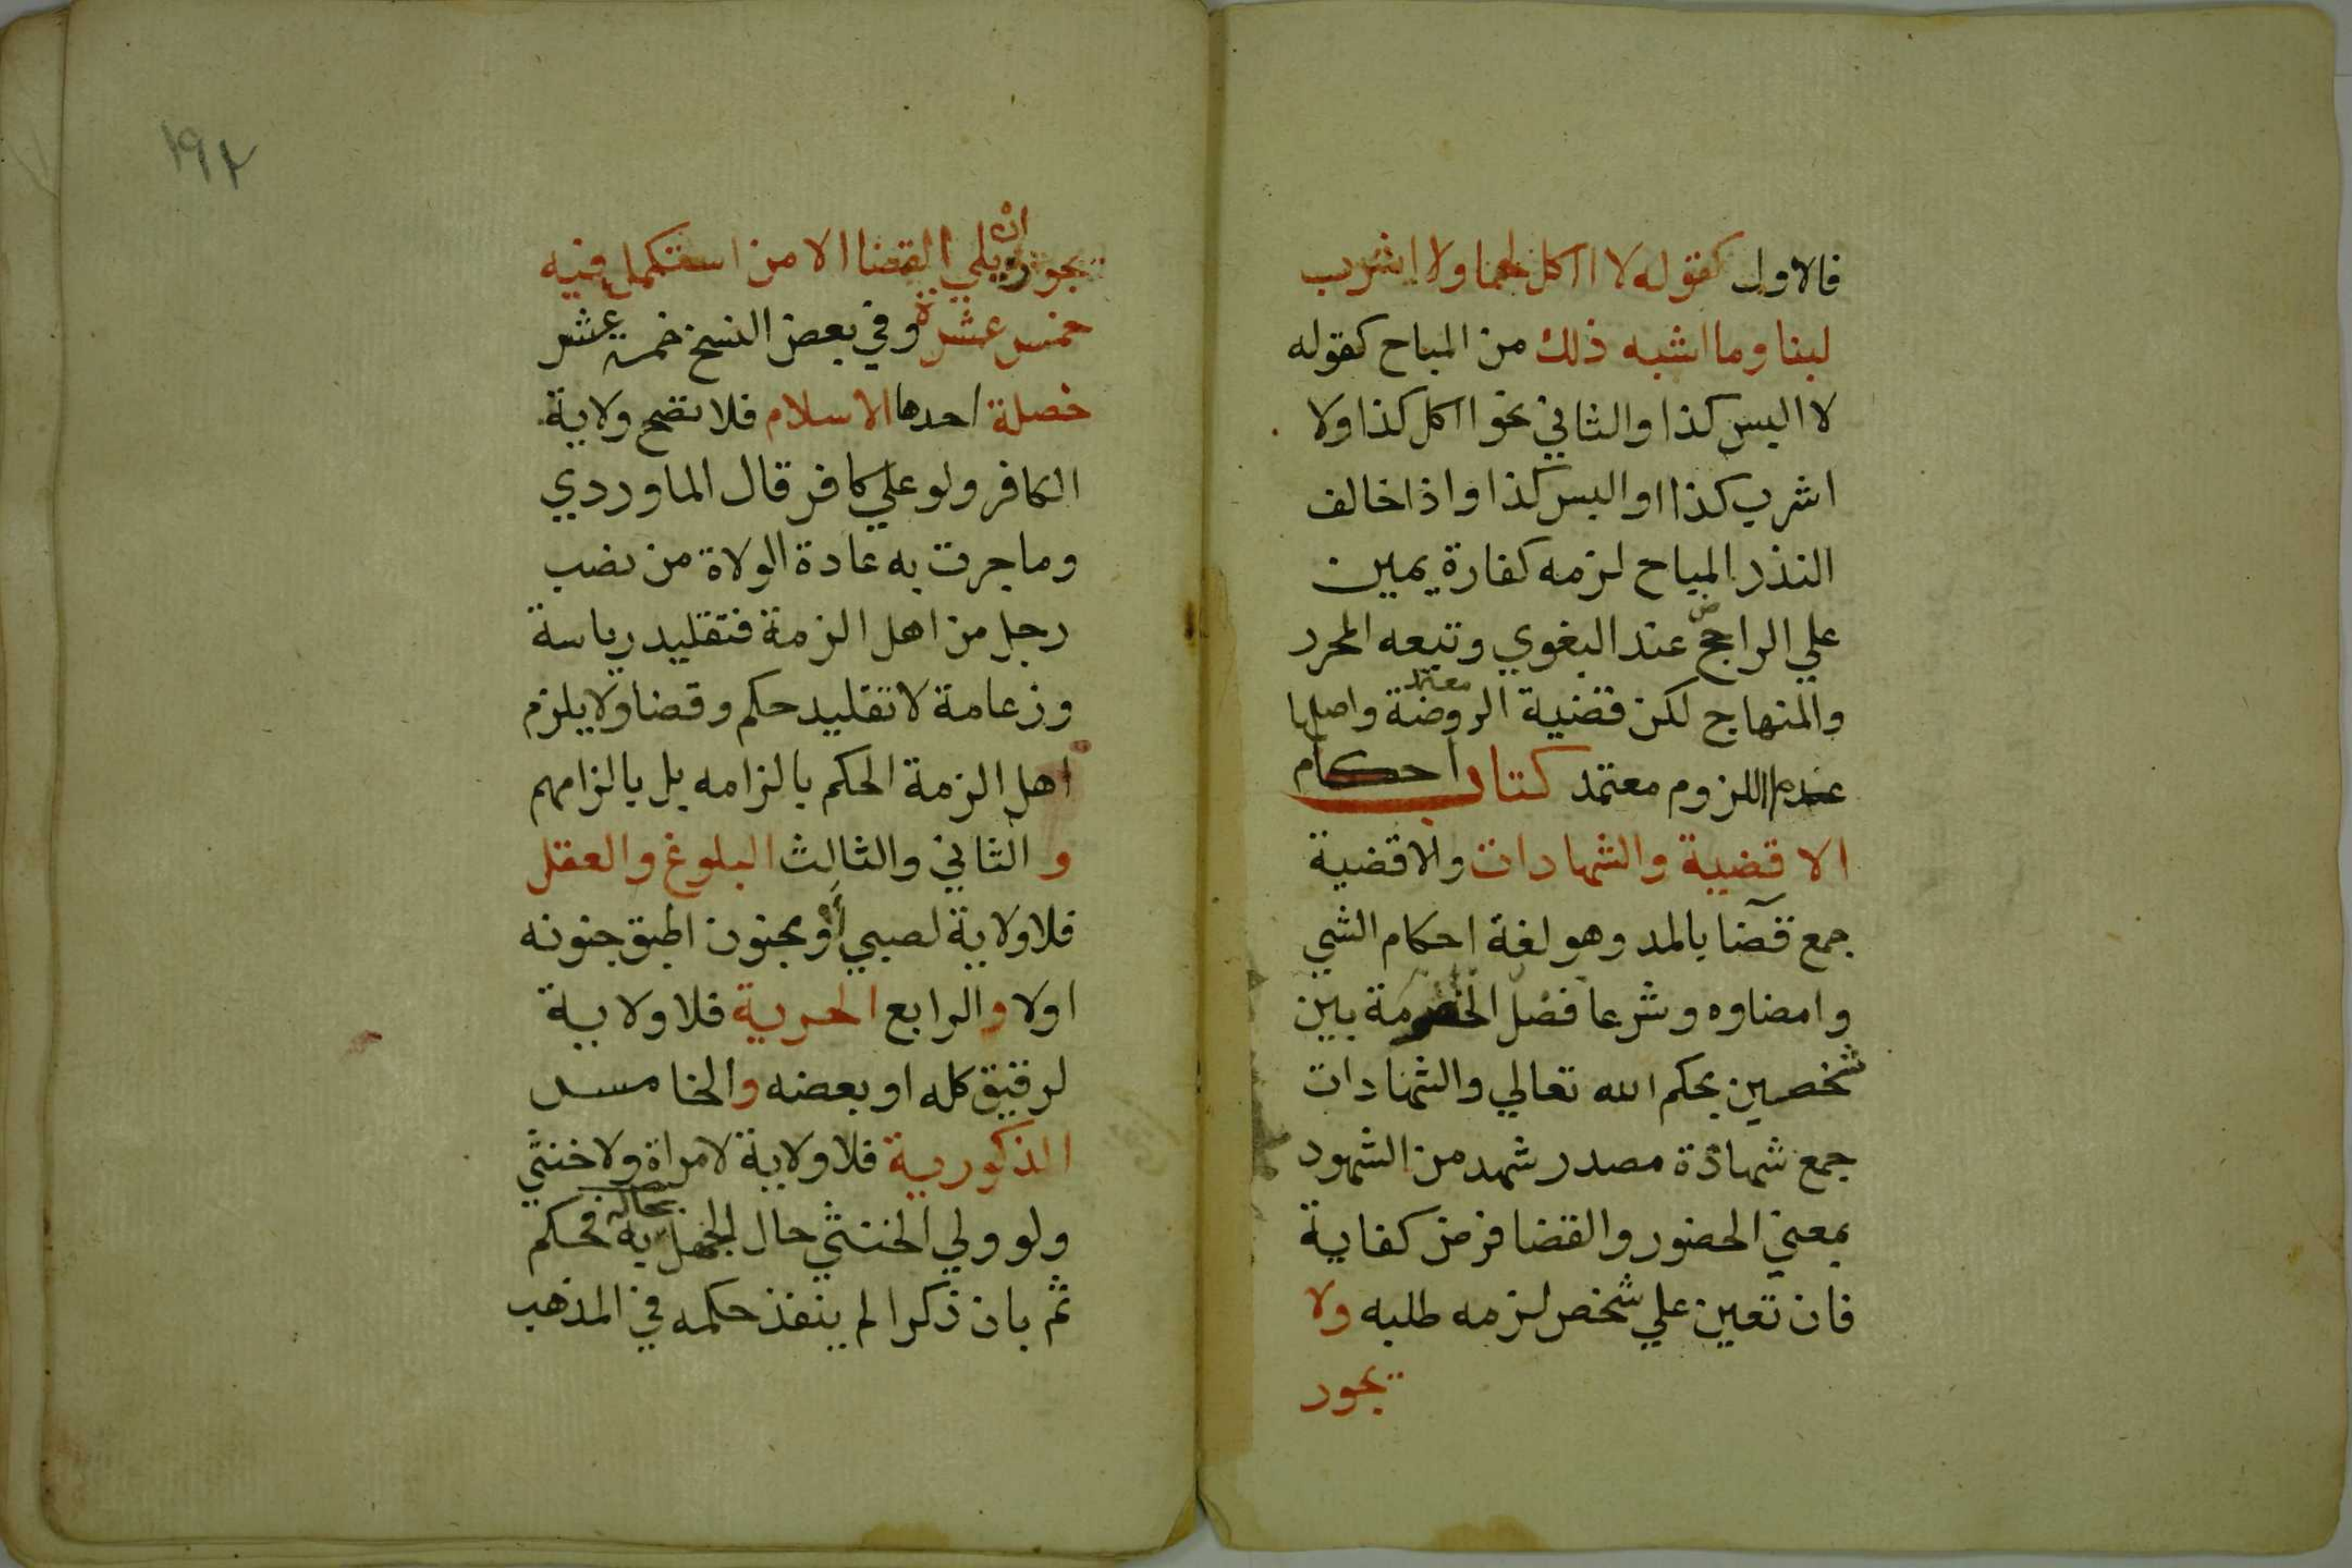 فالاول كقوله لا ااكل لحما ولا اشرب
لبنا وما اشبه ذلك من المباح كقوله
لا البس كذا والثاني نحو ااكل كذا ولا
اشرب كذا او البس كذا واذا خالف
النذر المباح لزمه كفارة يمين
علي الراجح عند البغوي وتبعه المحرر
معتمد
والمنهاج لكن قضية الروضة واصلها
عدم اللزوم معتمد كتاب احكام
الاقضية والشهادات والاقضية
جمع قضا بالمد وهو لغة احكام الشي
وامضاوه وشرعا فصل الخصومة بين
شخصين بحكم الله تعالي والشهادات
جمع شهادة مصدر شهد من الشهود
بمعني الحضور والقضا فرض كفاية
فان تعين علي شخص لزمه طلبه ولا
يجوز
١٩٢
يجوز ان يلي القضا الا من استكمل فيه
خمس عشرة وفي بعض النسخ خمسة عشر
خصلة احدها الاسلام فلا تصح ولاية
الكافر ولو علي كافر قال الماوردي
وما جرت به عادة الولاة من نصب
رجل من اهل الزمة فتقليد رياسة
وزعامة لا تقليد حكم وقضا ولا يلزم
اهل الزمة الحكم بالزامه بل بالزامهم
والثاني والثالث البلوغ والعقل
فلا ولاية لصبي او مجنون اطبق جنونه
اولا والرابع الحرية فلا ولاية
لرقيق كله او بعضه والخامس
الذكورية فلا ولاية لامراة ولا خنثي
بحاله
ولو ولي الخنثي حال الجهل به فحكم
ثم بان ذكرا لم ينفذ حكمه في المذهب